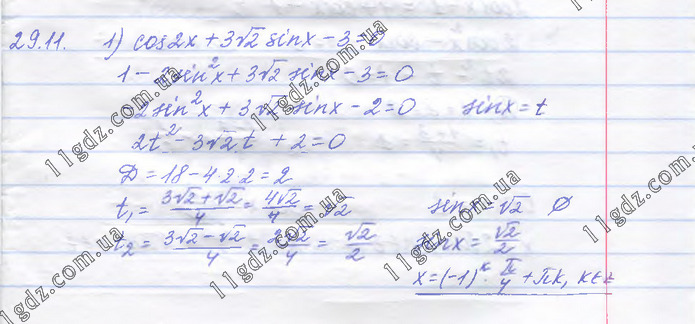 29.11. 1) cos2x + 3√2 sinx - 3 = 0
1 - 2sin²x + 3√2 sinx - 3 = 0
2sin²x + 3√2 sinx - 2 = 0 sinx = t
2t² - 3√2t + 2 = 0
D = 18 - 4·2·2 = 2
t₁ = (3√2 + √2)/4 = 4√2/4 = √2 sinx = √2 ∅
t₂ = (3√2 - √2)/4 = 2√2/4 = √2/2 sinx = √2/2
x = (-1)ᵏ · π/4 + πk, k∈z
11gdz.com.ua
11gdz.com.ua
11gdz.com.ua
11gdz.com.ua
11gdz.com.ua
11gdz.com.ua